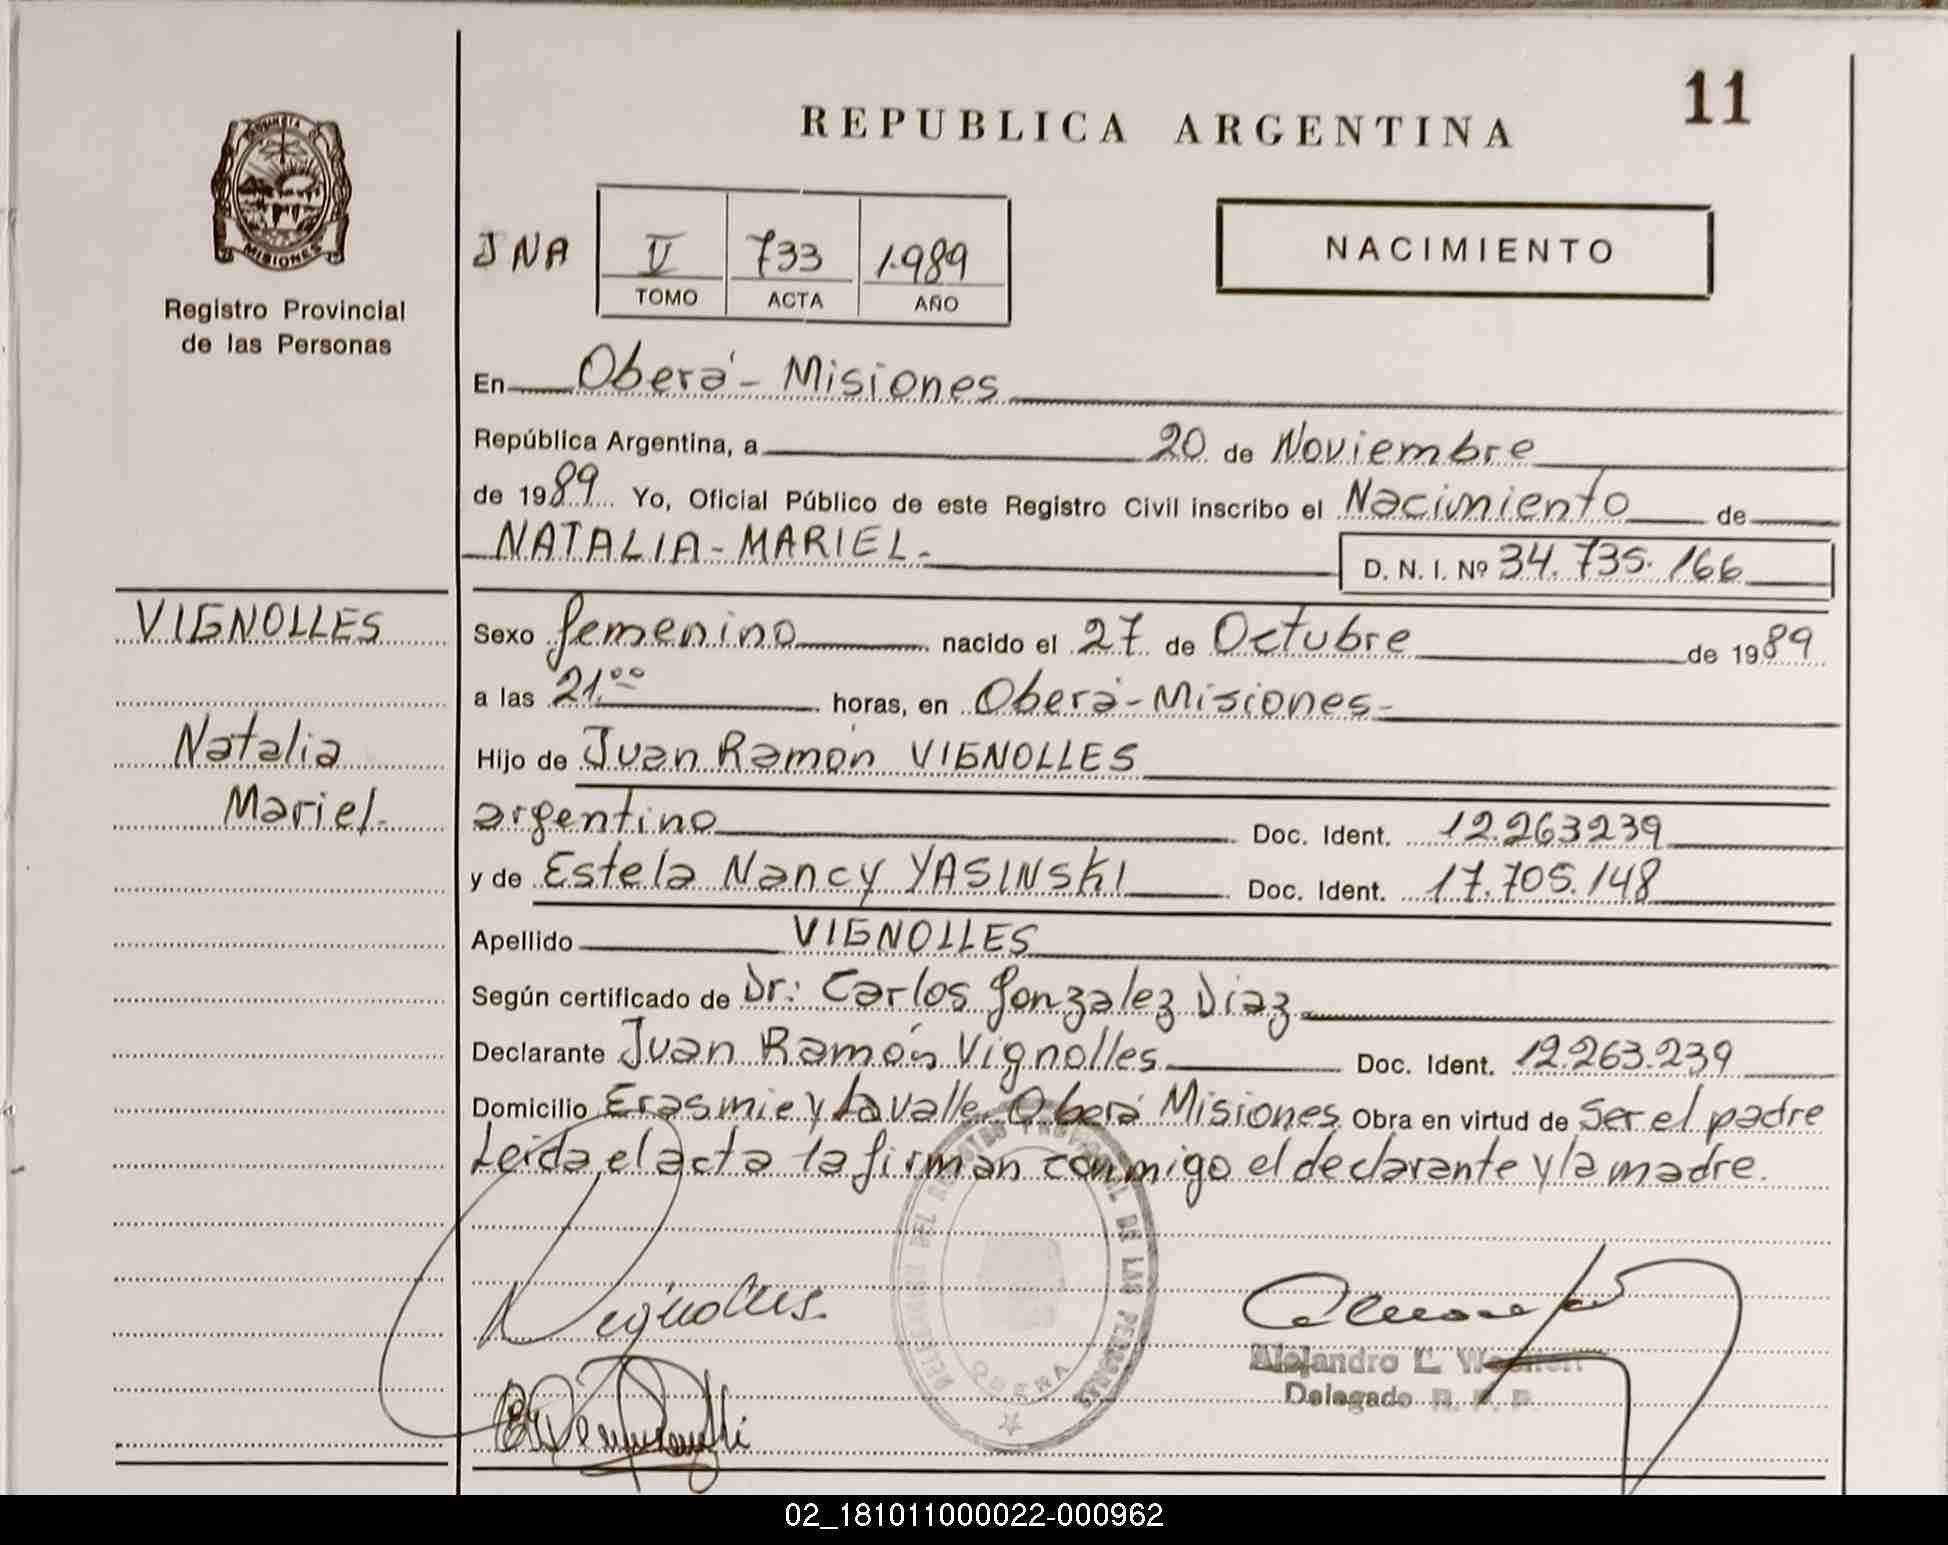 11
REPUBLICA ARGENTINA
PROVINCIA
MISIONES
Registro Provincial
de las Personas
NACIMIENTO
JNA V 733 1.989
TOMO ACTA AÑO
En Oberá - Misiones
República Argentina, a 20 de Noviembre
de 1989 Yo, Oficial Público de este Registro Civil inscribo el Nacimiento de
NATALIA - MARIEL.
D. N. I. Nº 34.735.166
VIGNOLLES
Natalia
Mariel.
Sexo femenino nacido el 27 de Octubre de 1989
a las 21.00 horas, en Oberá - Misiones -
Hijo de Juan Ramón VIGNOLLES
argentino Doc. Ident. 12.263239
y de Estela Nancy YASINSKI Doc. Ident. 17.705.148
Apellido VIGNOLLES
Según certificado de Dr: Carlos Gonzalez Diaz
Declarante Juan Ramón Vignolles Doc. Ident. 12.263.239
Domicilio Erasmie y Lavalle Oberá Misiones Obra en virtud de Ser el padre
Leida el acta la firman conmigo el declarante y la madre.
DELEGACION DEL REGISTRO PROVINCIAL DE LAS PERSONAS
OBERA
Vignolles.
Alejandro L.
Delegado R. P. P.
02_181011000022-000962